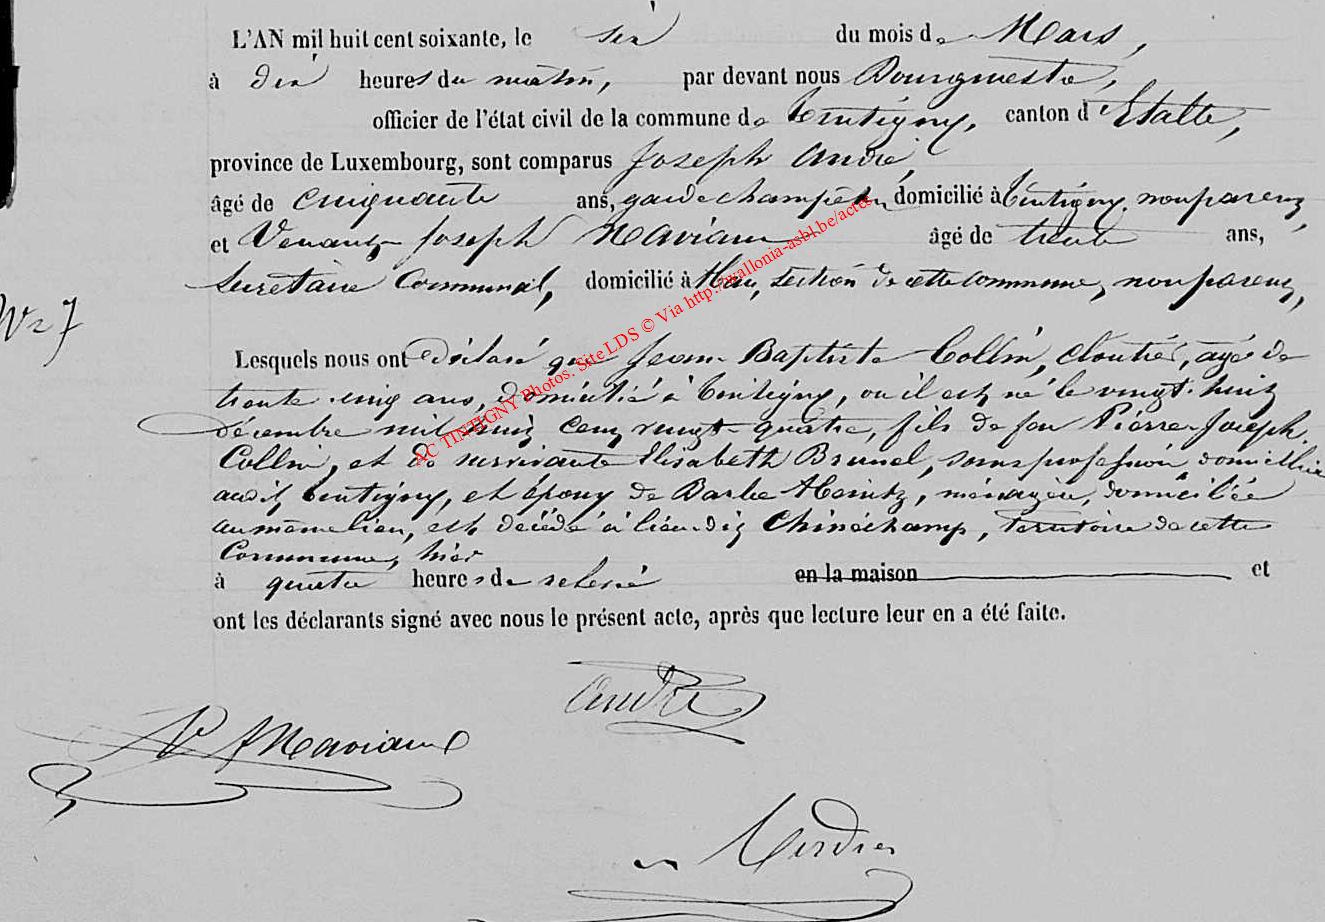 L'AN mil huit cent soixante, le six du mois de Mars,
à dix heures du matin, par devant nous Bourgmestre,
officier de l'état civil de la commune de Tintigny, canton d'Etalle,
province de Luxembourg, sont comparus Joseph André,
âgé de cinquante ans, garde champêtre, domicilié à Tintigny, non parent,
et Venant Joseph Maviaux âgé de trente ans,
Secrétaire Communal, domicilié à Han, section de cette commune, non parent,
Nr 7
Lesquels nous ont déclaré que Jean Baptiste Collin, cloutier, agé de
trente cinq ans, domicilié à Tintigny, où il est né le vingt-huit
décembre mil huit cent vingt-quatre, fils de feu Pierre Joseph
Collin, et de survivante Elisabeth Brunel, sans profession domiciliée
audit Tintigny, et époux de Barbe Heintz, ménagère, domiciliée
au même lieu, est décédé à lieu dit Chinéchamp, territoire de cette
Commune, hier
à quatre heures de relevé en la maison et
ont les déclarants signé avec nous le présent acte, après que lecture leur en a été faite.
André
V J Maviaux
AC TINTIGNY Photos. Site LDS © Via http://wallonia-asbl.be/actes